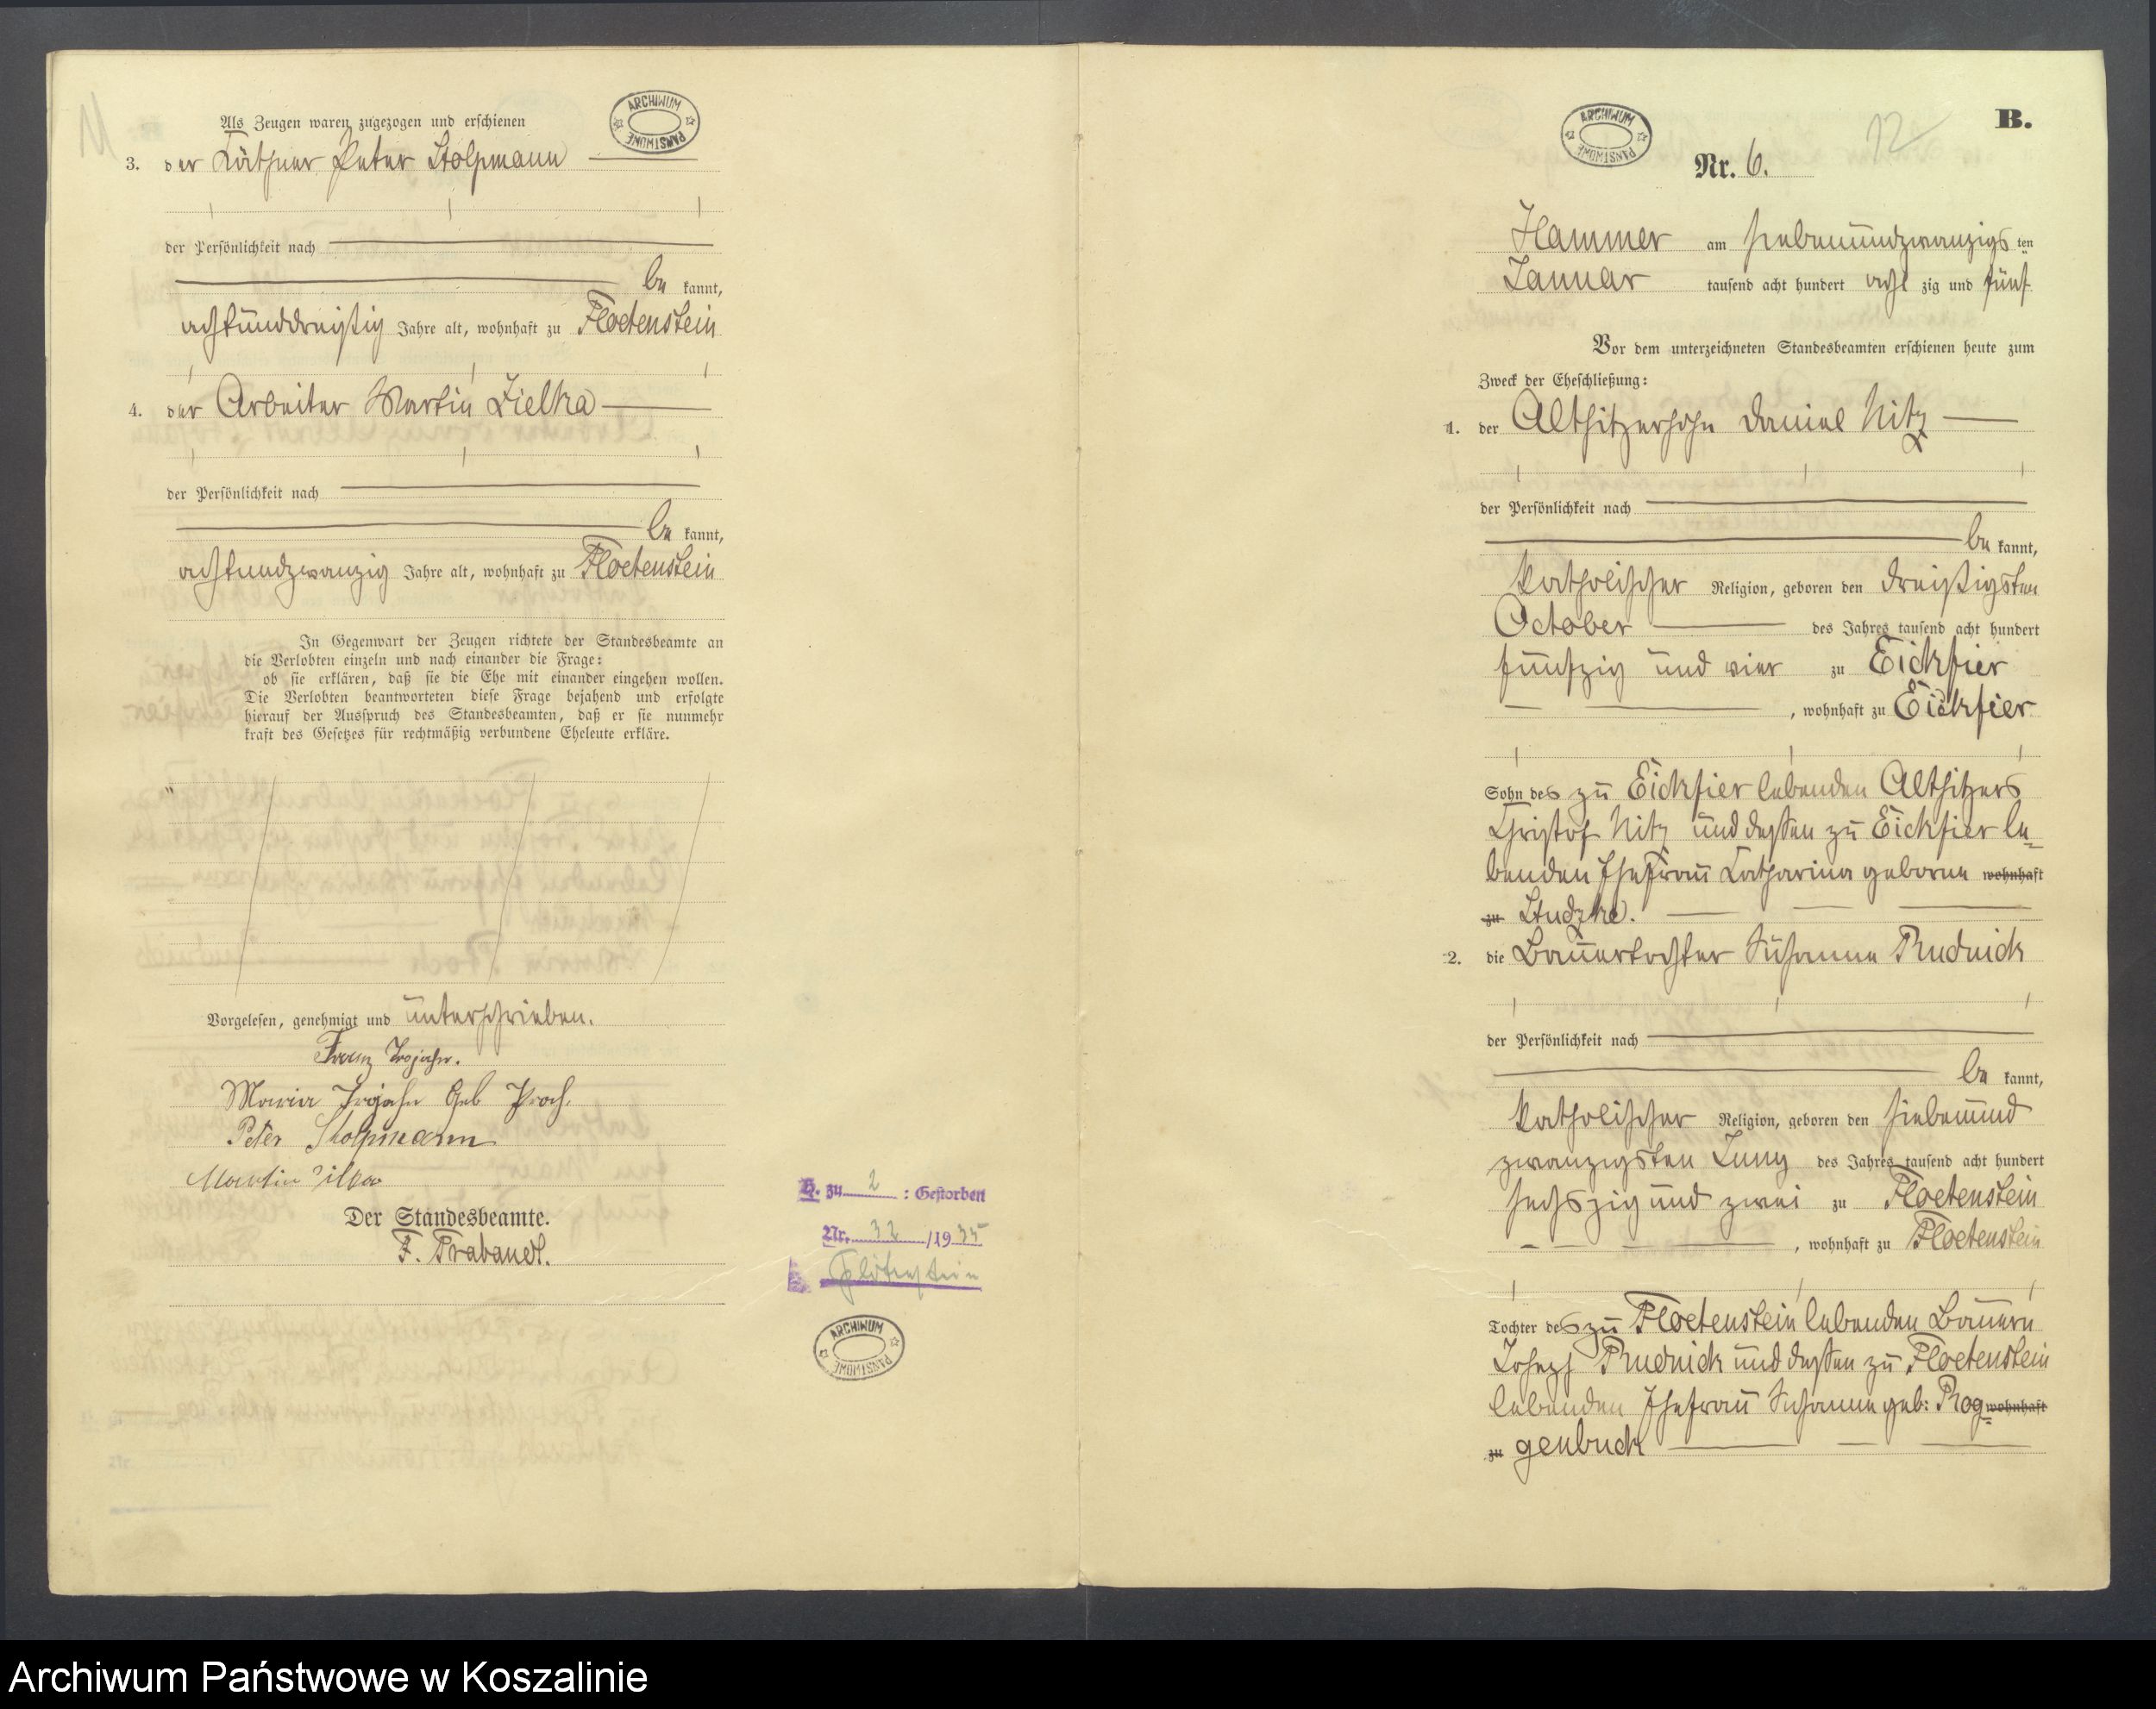 11
ARCHIWUM PAŃSTWOWE
Als Zeugen waren zugezogen und erschienen
3. der Käthner Peter Stolpmann
der Persönlichkeit nach
be kannt,
achtunddreißig Jahre alt, wohnhaft zu Floetenstein
4. der Arbeiter Martin Zielka
der Persönlichkeit nach
be kannt,
achtundzwanzig Jahre alt, wohnhaft zu Floetenstein
In Gegenwart der Zeugen richtete der Standesbeamte an
die Verlobten einzeln und nach einander die Frage:
ob sie erklären, daß sie die Ehe mit einander eingehen wollen.
Die Verlobten beantworteten diese Frage bejahend und erfolgte
hierauf der Ausspruch des Standesbeamten, daß er sie nunmehr
kraft des Gesetzes für rechtmäßig verbundene Eheleute erkläre.
Vorgelesen, genehmigt und unterschrieben.
Franz Trojahn.
Maria Trojahn Geb Proch.
Peter Stolpmann
Martin
Der Standesbeamte.
F. Prabandt.
H. zu 2 : Gestorben
Nr. 32 /1935
Flötenstein
ARCHIWUM PAŃSTWOWE
ARCHIWUM PAŃSTWOWE
12
B.
Nr. 6.
Hammer am siebenundzwanzigsten
Januar tausend acht hundert acht zig und fünf
Vor dem unterzeichneten Standesbeamten erschienen heute zum
Zweck der Eheschließung:
1. der Altsitzersohn Daniel Nitz
der Persönlichkeit nach
be kannt,
katholischer Religion, geboren den dreißigsten
October des Jahres tausend acht hundert
fünfzig und vier zu Eickfier
, wohnhaft zu Eickfier
Sohn des zu Eickfier lebenden Altsitzers
Christof Nitz und dessen zu Eickfier le=
benden Ehefrau Catharina geborne wohnhaft
zu Studzke.
2. die Bauertochter Susanne Rudnick
der Persönlichkeit nach
be kannt,
katholischer Religion, geboren den siebenund
zwanzigsten Juny des Jahres tausend acht hundert
sechszig und zwei zu Floetenstein
, wohnhaft zu Floetenstein
Tochter des zu Floetenstein lebenden Bauern
Joseph Rudnick und dessen zu Floetenstein
lebenden Ehefrau Susanne geb: Rog= wohnhaft
zu genbuck
Archiwum Państwowe w Koszalinie